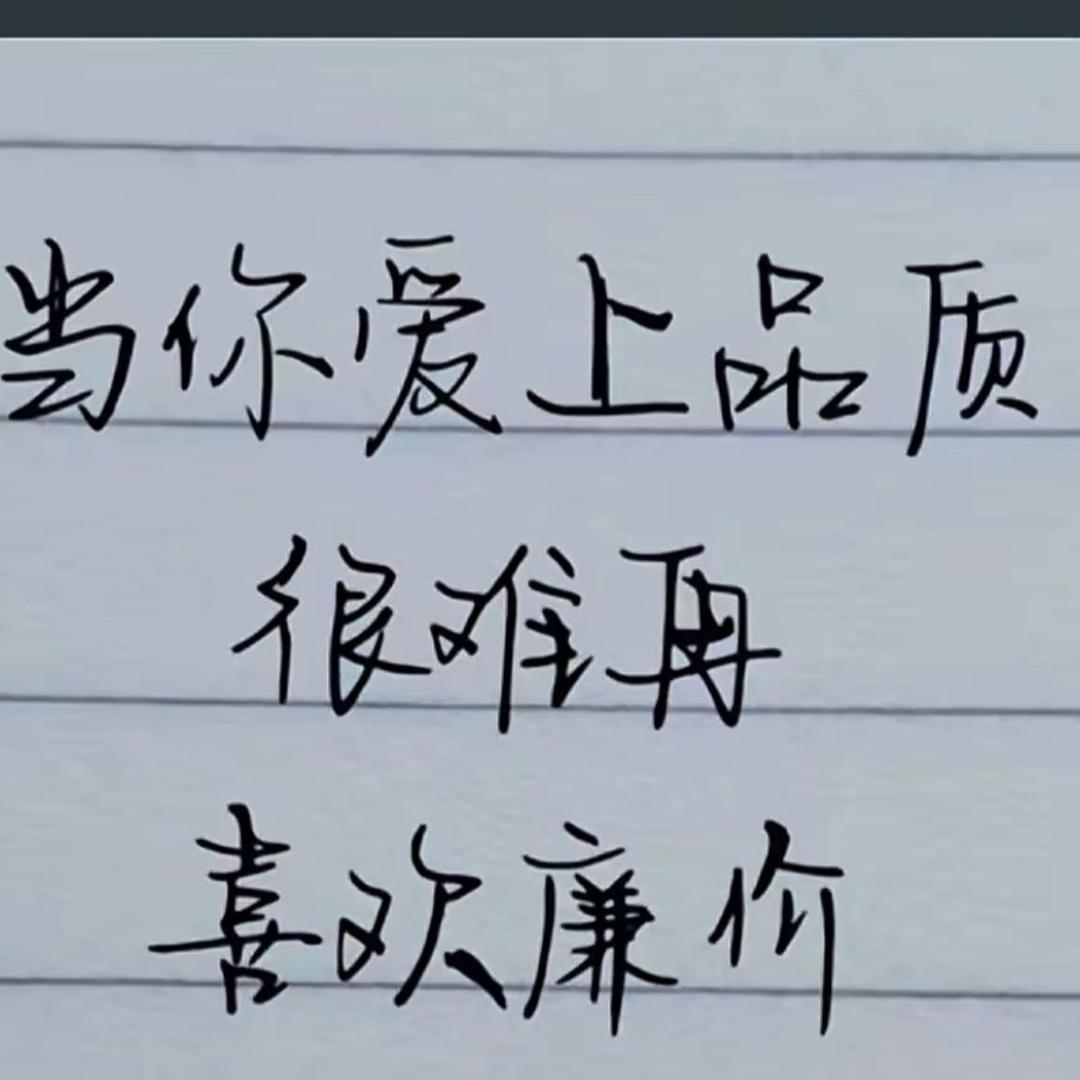 当你爱上品质
很难再
喜欢廉价